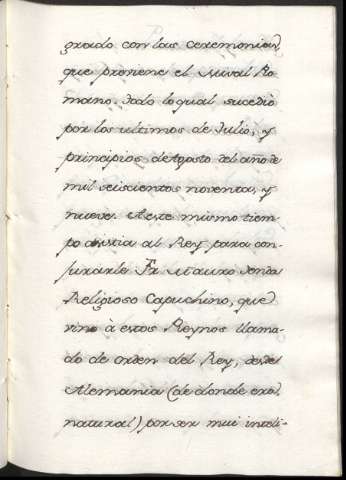 grado con las ceremonias,
que previene el Misal Ro-
mano. Todo lo qual sucediò
por los ultimos de Julio, y
principios de Agosto del año de
mil seiscientos noventa, y
nueve. A este mismo tiem-
po asistia al Rey para con-
jurarle Fr. Mauro Tenda
Religioso Capuchino, que
vino à estos Reynos llama-
do de orden del Rey, desde
Alemania (de donde era
natural) por ser mui inteli-